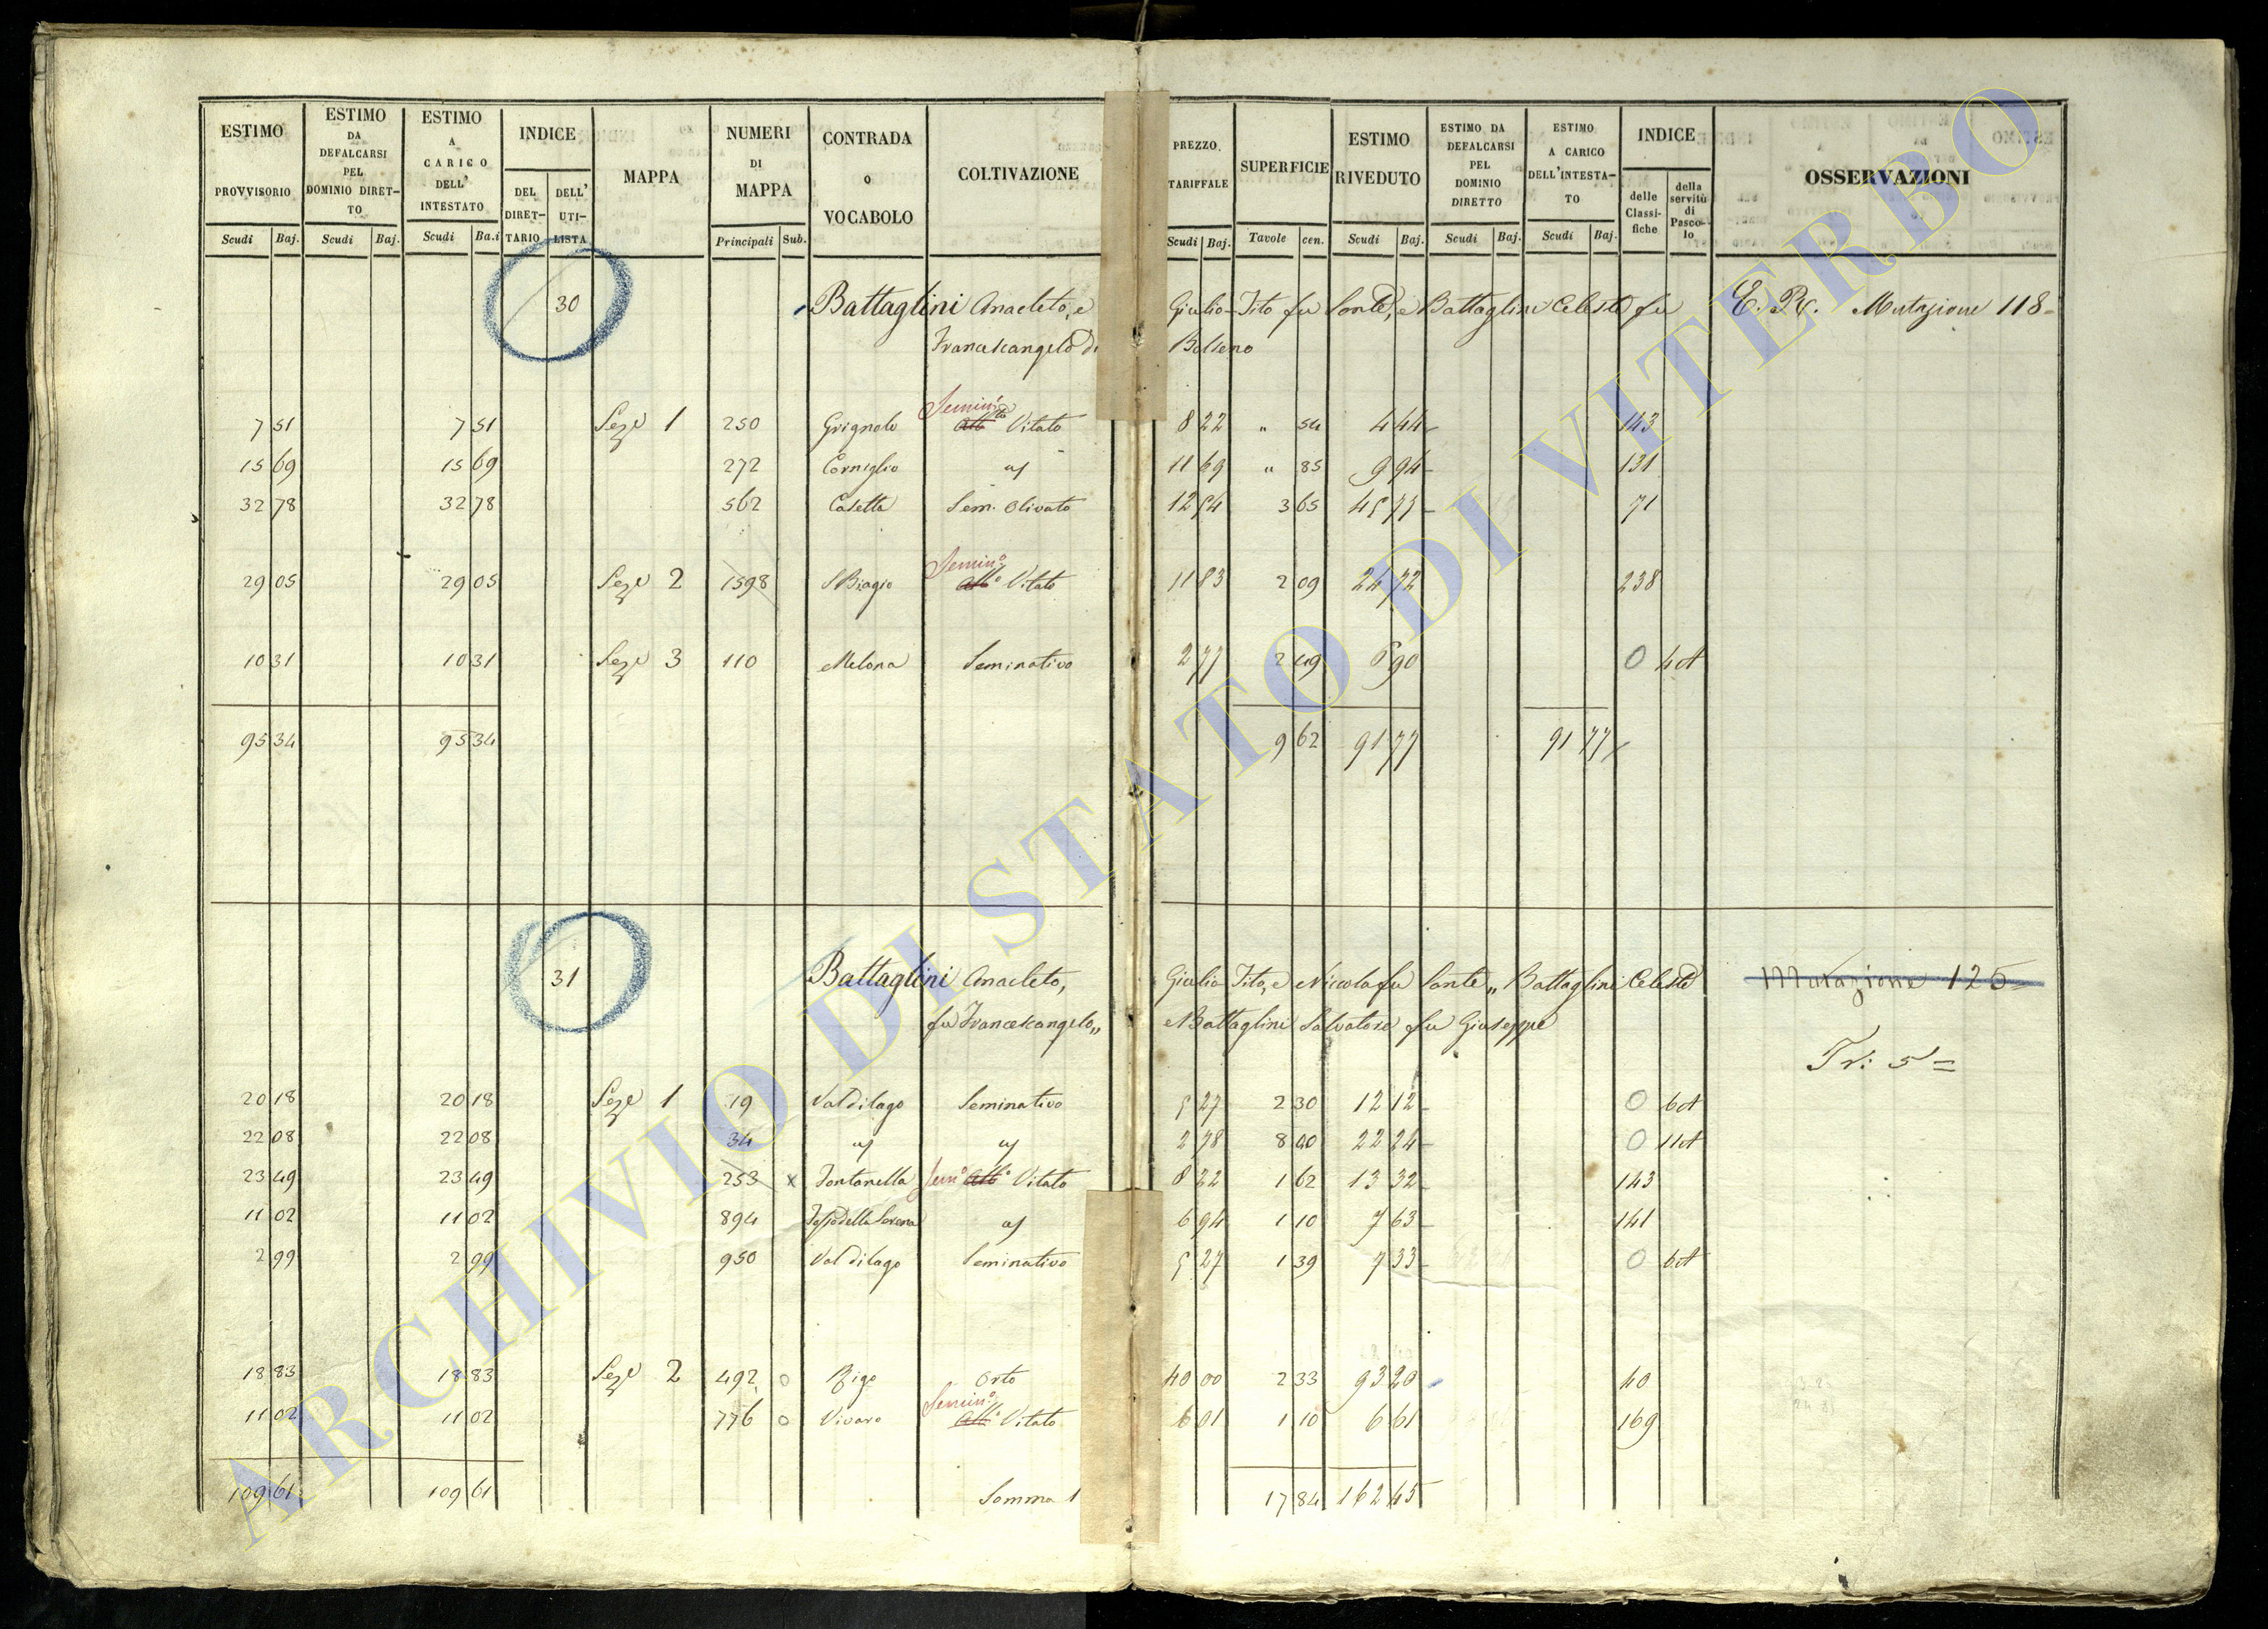 ESTIMO PROVVISORIO Scudi Baj.
ESTIMO DA DEFALCARSI PEL DOMINIO DIRET-TO Scudi Baj.
ESTIMO A CARICO DELL' INTESTATO Scudi Ba.i
INDICE DEL DIRET-TARIO DELL' UTI-LISTA
MAPPA
NUMERI DI MAPPA Principali Sub.
CONTRADA o VOCABOLO
COLTIVAZIONE
PREZZO TARIFFALE Scudi Baj.
SUPERFICIE Tavole cen.
ESTIMO RIVEDUTO Scudi Baj.
ESTIMO DA DEFALCARSI PEL DOMINIO DIRETTO Scudi Baj.
ESTIMO A CARICO DELL'INTESTA-TO Scudi Baj.
INDICE delle Classi-fiche della servitù di Pasco-lo
OSSERVAZIONI
30 Battaglini Anacleto, e Giulio Tito fu Sante, e Battaglini Celeste fu Mutazione 118
Francescangelo di Bolseno
7 51 7 51 Seze 1 250 Grignolo Semin.to Vitato 8 22 " 54 4 44 143
15 69 15 69 272 Corniglio 11 69 " 85 9 94 131
32 78 32 78 562 Casetta Sem. Olivato 12 54 3 65 45 77 71
29 05 29 05 Seze 2 1598 S Biagio Semin.o Vitato 11 83 2 09 24 72 238
10 31 10 31 Seze 3 110 Melona Seminativo 2 77 2 49 6 90 0
95 34 95 34 9 62 91 77 91 77
31 Battaglini Anacleto, Giulio Tito, e Nicola fu Sante,, Battaglini Celeste Mutazione 125
fu Francescangelo,, e Battaglini Salvatore fu Giuseppe
Tr: 5 =
20 18 20 18 Seze 1 19 Valdilago Seminativo 5 27 2 30 12 12 0
22 08 22 08 34 2 78 8 40 22 24 0
23 49 23 49 253 x Fontanella Sem.o Vitato 8 22 1 62 13 32 143
11 02 11 02 894 6 94 1 10 7 63 141
2 99 2 99 950 Valdilago Seminativo 5 27 1 39 7 33 0
18 83 18 83 Seze 2 492 o Rigo Orto 40 00 2 33 93 20 40
11 02 11 02 776 o Vivaro Semin.o Vitato 6 01 1 10 6 61 169
109 61 109 61 Somma 17 84 162 45
ARCHIVIO DI STATO DI VITERBO